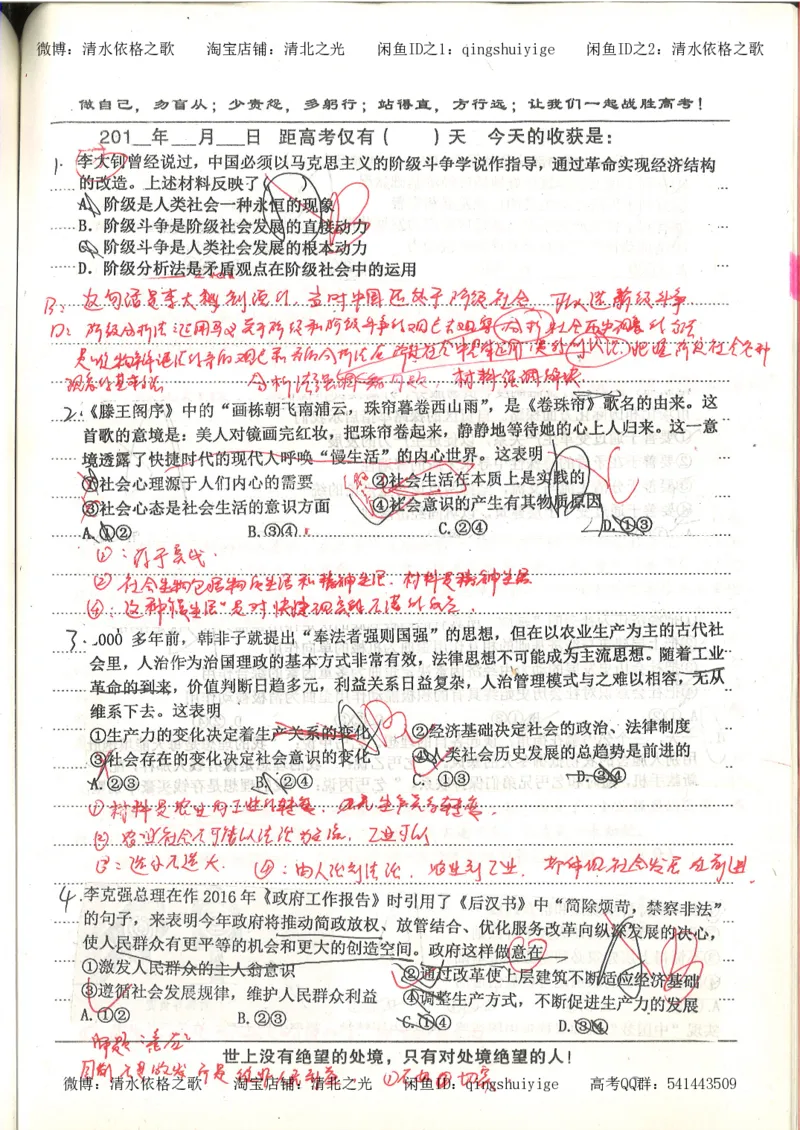 微博：清水依格之歌　　淘宝店铺：清北之光　　闲鱼ID之1：qingshuiyige　　闲鱼ID之2：清水依格之歌
做自己，勿盲从；少责怨，多躬行；站得直，方行远；让我们一起战胜高考！
201__年___月___日　距高考仅有（　　）天　今天的收获是：
1. 李大钊曾经说过，中国必须以马克思主义的阶级斗争学说作指导，通过革命实现经济结构
的改造。上述材料反映了（　　）
A. 阶级是人类社会一种永恒的现象
B. 阶级斗争是阶级社会发展的直接动力
C. 阶级斗争是人类社会发展的根本动力
D. 阶级分析法是矛盾观点在阶级社会中的运用
B：这句话是李大钊说的，当时中国还处于阶级社会
2.《滕王阁序》中的“画栋朝飞南浦云，珠帘暮卷西山雨”，是《卷珠帘》歌名的由来。这
首歌的意境是：美人对镜画完红妆，把珠帘卷起来，静静地等待她的心上人归来。这一意
境透露了快捷时代的现代人呼唤“慢生活”的内心世界。这表明
①社会心理源于人们内心的需要　　②社会生活在本质上是实践的
③社会心态是社会生活的意识方面　　④社会意识的产生有其物质原因
A. ①②　　B.③④　　C.②④　　D.①③
①：源于实践.
②社会生活包括物质生活和精神生活. 材料是精神生活
④：这种“慢生活”是对快捷现实的不满的反应.
3. .000 多年前，韩非子就提出“奉法者强则国强”的思想，但在以农业生产为主的古代社
会里，人治作为治国理政的基本方式非常有效，法律思想不可能成为主流思想。随着工业
革命的到来，价值判断日趋多元，利益关系日益复杂，人治管理模式与之难以相容，无从
维系下去。这表明
①生产力的变化决定着生产关系的变化　　②经济基础决定社会的政治、法律制度
③社会存在的变化决定社会意识的变化　　④人类社会历史发展的总趋势是前进的
A. ②③　　B. ②④　　C. ①③　　D.③④
①材料是农业向工业的转变.
②农业社会不可能以法治为主流, 工业可以
4. 李克强总理在作 2016 年《政府工作报告》时引用了《后汉书》中“简除烦苛，禁察非法”
的句子，来表明今年政府将推动简政放权、放管结合、优化服务改革向纵深发展的决心，
使人民群众有更平等的机会和更大的创造空间。政府这样做意在
①激发人民群众的主人翁意识　　②通过改革使上层建筑不断适应经济基础
③遵循社会发展规律，维护人民群众利益　　④调整生产方式，不断促进生产力的发展
A. ①②　　B. ②③　　C. ①④　　D. ③④
世上没有绝望的处境，只有对处境绝望的人！
微博：清水依格之歌　　淘宝店铺：清北之光　　闲鱼ID：qingshuiyige　　高考QQ群：541443509